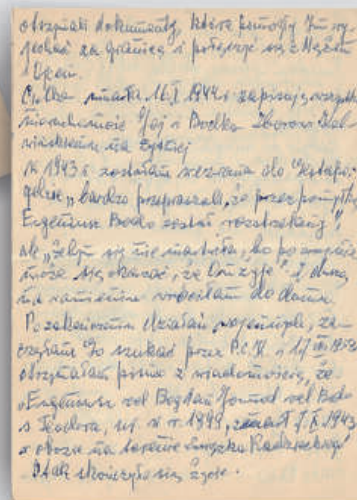 otrzymali dokumenty, które pomogły Im wy-
jechać za granicę i połączyć się z Mężem
i Ojcem.
Ciotka zmarła 16.I.1944 r zapisując wszystkie
nieruchomości Jej i Bodka
na Łyżkiej
W 1943 r. zostałam wezwana do "Gestapo"
gdzie "bardzo przepraszali, że przez pomyłkę
Eugeniusz Bodo został rozstrzelany",
ale "żebym się nie martwiła, bo po wojnie
może się okazać, że On żyje" i
na ramieniu wróciłam do domu.
Po zakończeniu działań wojennych, za-
częłam Go szukać przez P.C.K. i 17
otrzymałam pismo z wiadomością, że
"Eugeniusz vel Bogdan Junod vel Bodo
s. Teodora, ur. w r. 1899, zmarł 7.X.1943
w obozie na terenie Związku Radzieckiego"
- Tak skończyło się życie.